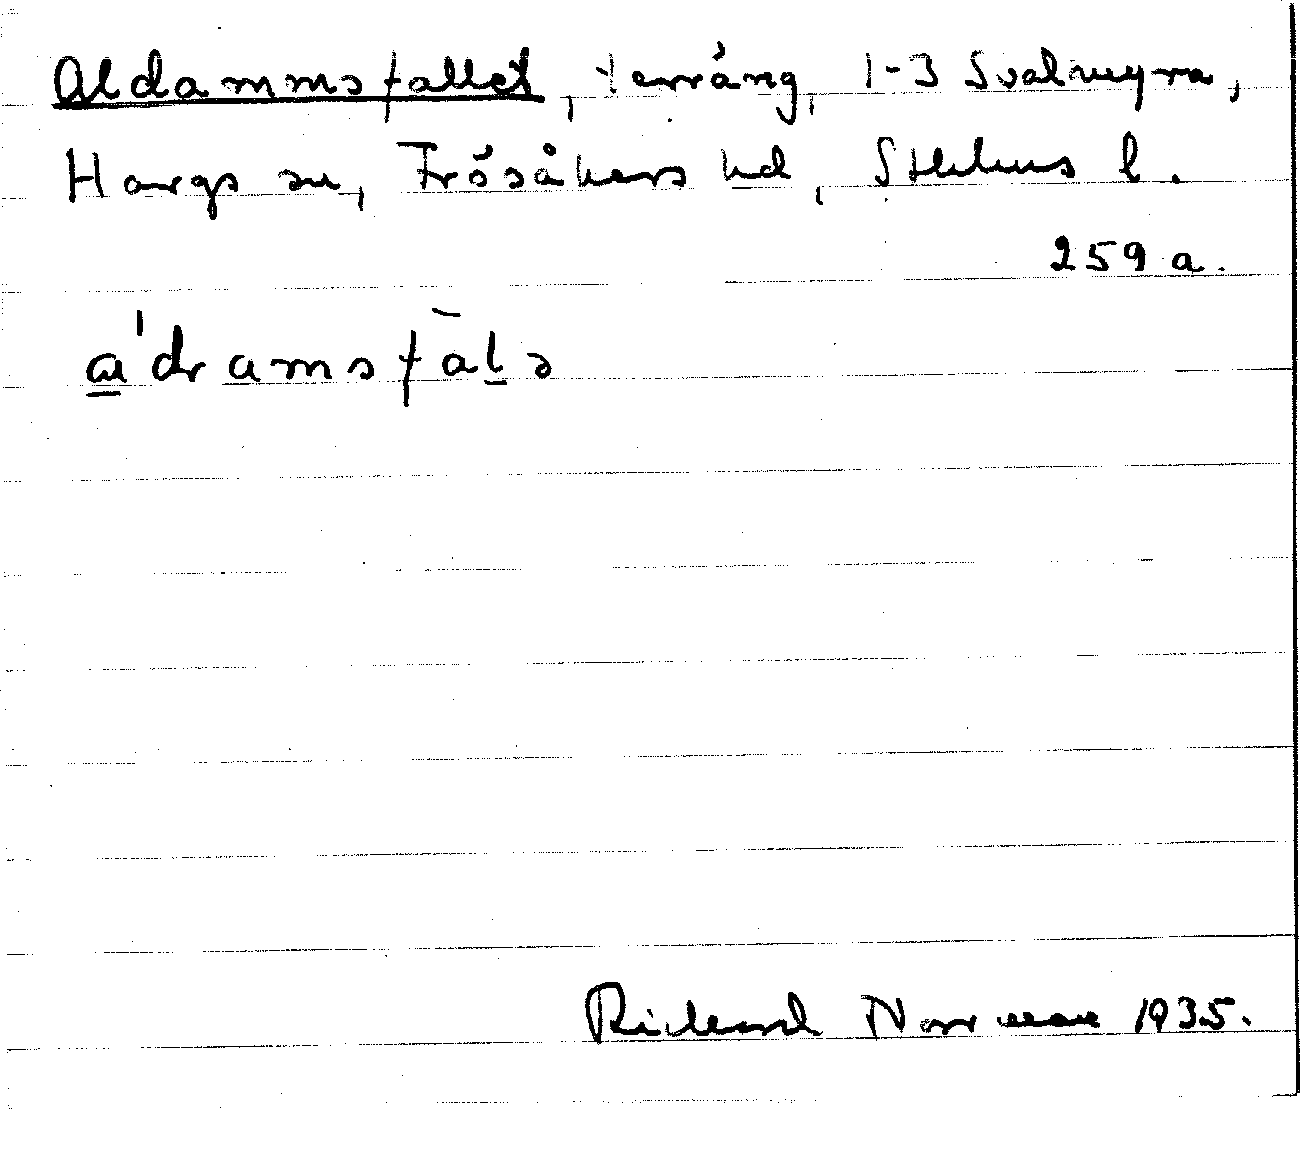 Aldammsfallet, terräng, 1-3 Svalmyra,
Hargs sn, Frösåkers hd, Sthlms l.
259 a.
a'dramsfāls
Rickard Norrman 1935.